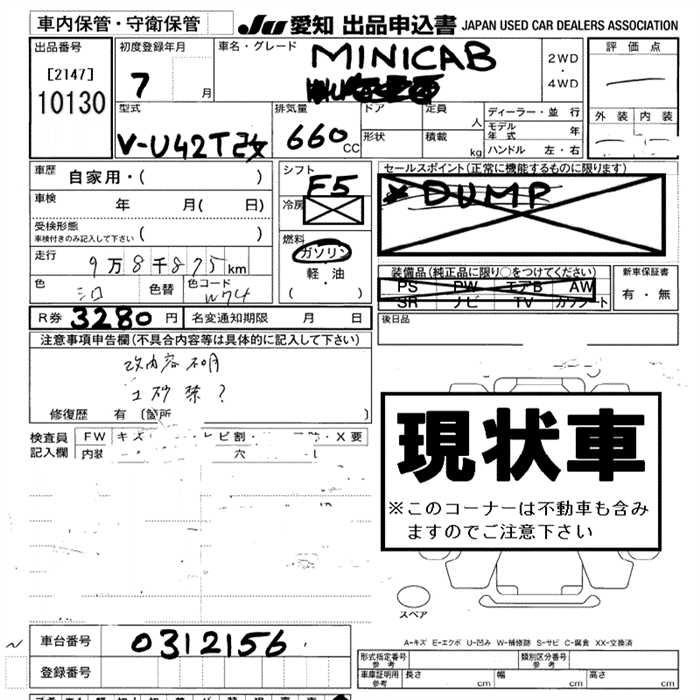 車内保管・守衛保管
JU 愛知 出品申込書 JAPAN USED CAR DEALERS ASSOCIATION
出品番号
[2147]
10130
初度登録年月
7 月
車名・グレード
MINICAB
2WD
・
4WD
評価点
外装 内装
型式
V-U42T改
排気量
660 CC
ドア
形状
定員 人
積載 kg
ディーラー・並行
モデル年式 年
ハンドル 左・右
車歴 自家用・( )
車検 年 月( 日)
受検形態
車検付きのみ記入して下さい ( )
走行 9万8千875km
色 シロ
色替
色コード W74
シフト
F5
冷房
燃料
ガソリン
軽・油
( ・ )
セールスポイント(正常に機能するものに限ります)
DUMP
装備品(純正品に限り○をつけてください)
PS PW エアB AW
SR ナビ TV カワシート
新車保証書
有・無
R券 3280円
名変通知期限 月 日
後日品
注意事項申告欄(不具合内容等は具体的に記入して下さい)
改内容不明
土砂禁?
修復歴 有 〔箇所 〕
検査員記入欄
FW キズ
レビ割・
・X要
内装
穴
現状車
※このコーナーは不動車も含み
ますのでご注意下さい
スペア
A-キズ E-エクボ U-凹み W-補修跡 S-サビ C-腐食 XX-交換済
車台番号 0312156
登録番号
形式指定番号 参考
類別区分番号 参考
車庫証明用 参考
長さ cm
幅 cm
高さ cm